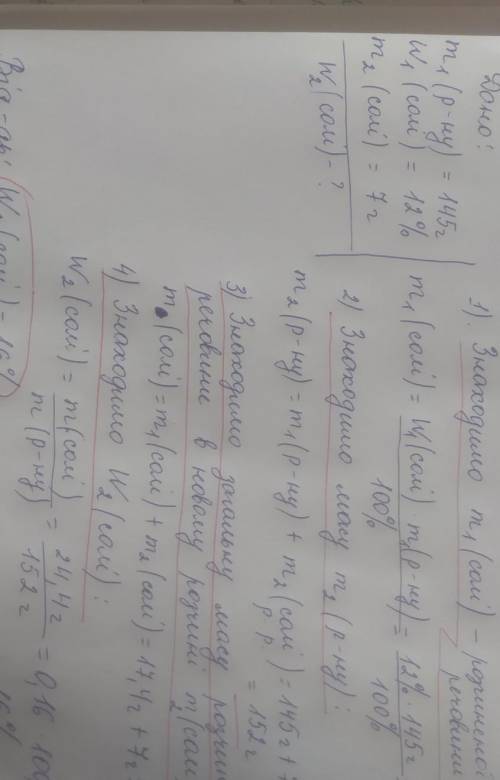 Дано:
m₁ (р-ну) = 145г
W₁ (солі) = 12%
m₂ (солі) = 7г
W₂ (солі) - ?
1). Знаходимо m₁ (солі) -
речовини
m₁ (солі) = W₁(солі) · m₁(р-ну) / 100% = 12% · 145г / 100%
2) Знаходимо масу m₂ (р-ну):
m₂ (р-ну) = m₁ (р-ну) + m₂ (солі) = 145г +
р. р.
= 152г
3) Знаходимо загальну масу
речовини в новому розчині m₂ (солі
m (солі) = m₁ (солі) + m₂ (солі) = 17,4г + 7г
4) Знаходимо W₂ (солі):
W₂ (солі) = m (солі) / m (р-ну) = 24,4г / 152г = 0,16 · 100
16%
(солі) = 16%